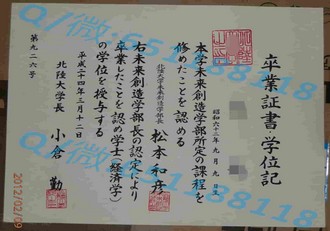 卒業証書・学位記
昭和六十三年九月九日生
本学未来創造学部所定の課程を
修めたことを認める
北陸大学未来創造学部長
松本和彦
右未来創造学部長の認定により
卒業したことを認め学士(経済学)
の学位を授与する
平成二十四年三月十二日
北陸大学長
小倉勤
第九二六号
2012/02/09